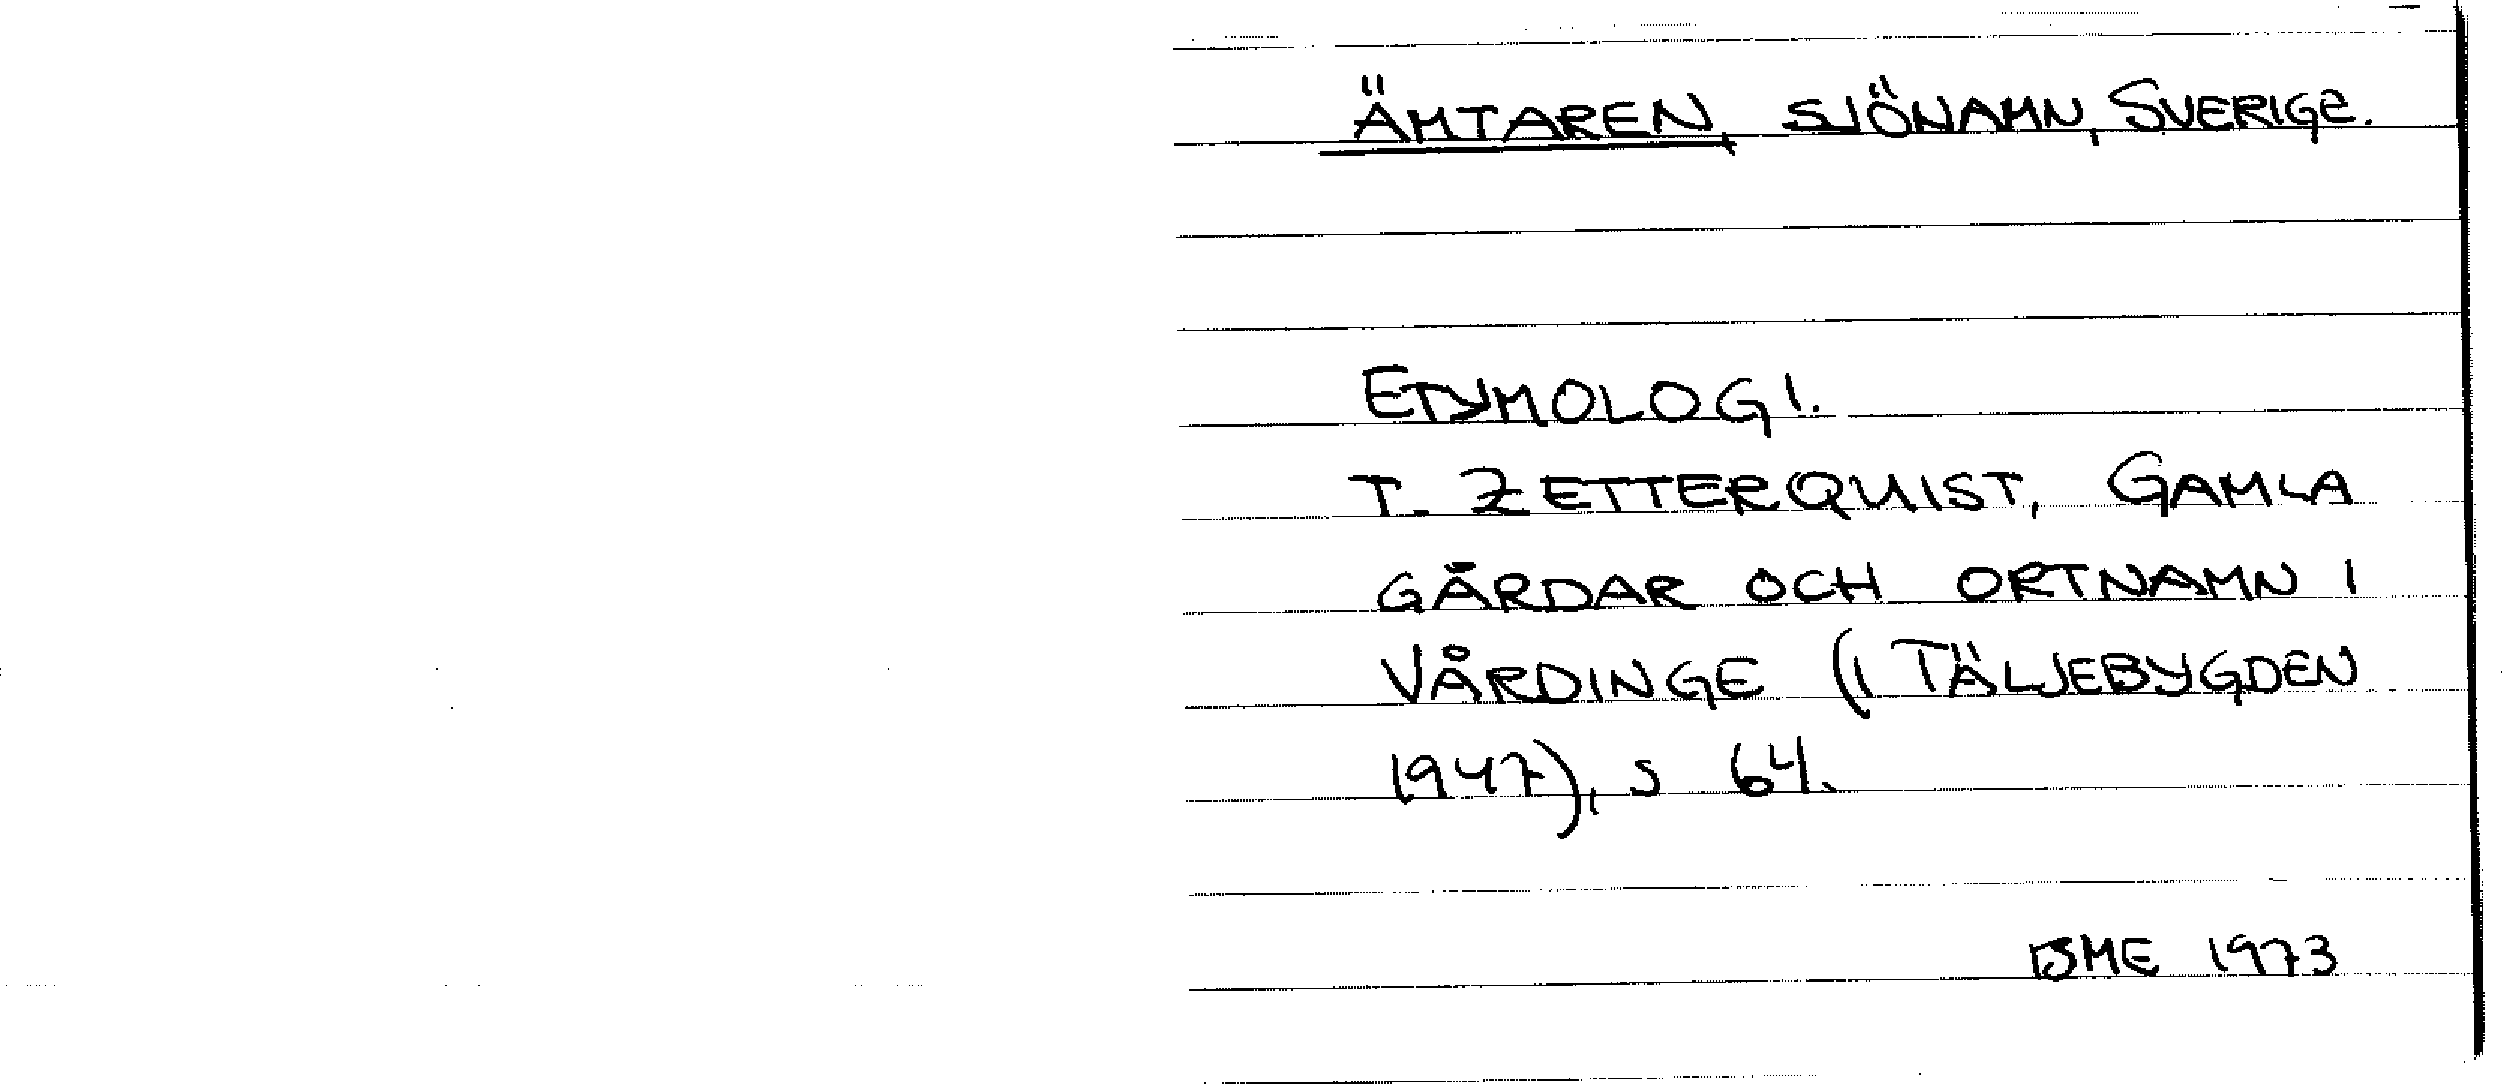 ÄMTAREN, SJÖNAMN, SVERIGE.
ETYMOLOGI.
T. ZETTERQUIST, GAMLA
GÅRDAR OCH ORTNAMN I
VÅRDINGE (I TÄLJEBYGDEN
1947), s 64.
BME 1973